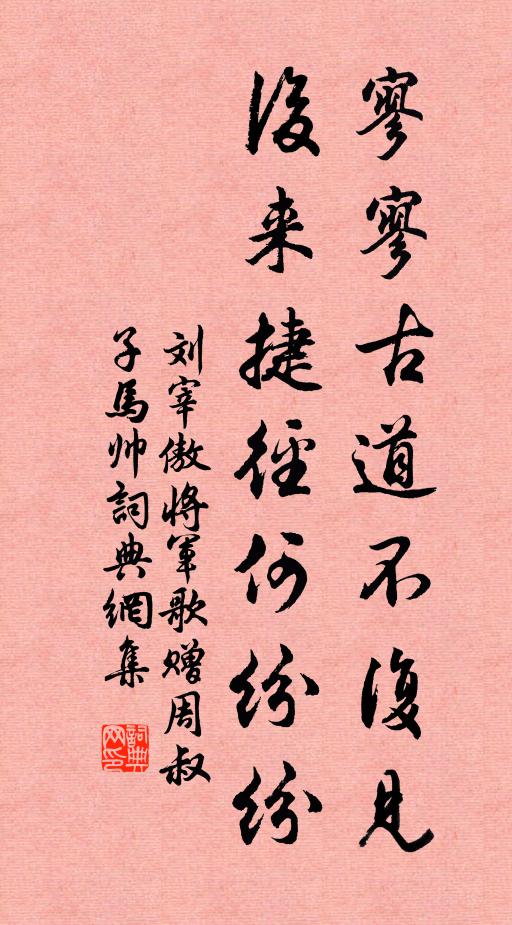 寥寥古道不復見
後来捷徑何紛紛
刘宰傲将軍歌赠周叔
子馬帅詞典網集
詞典网印